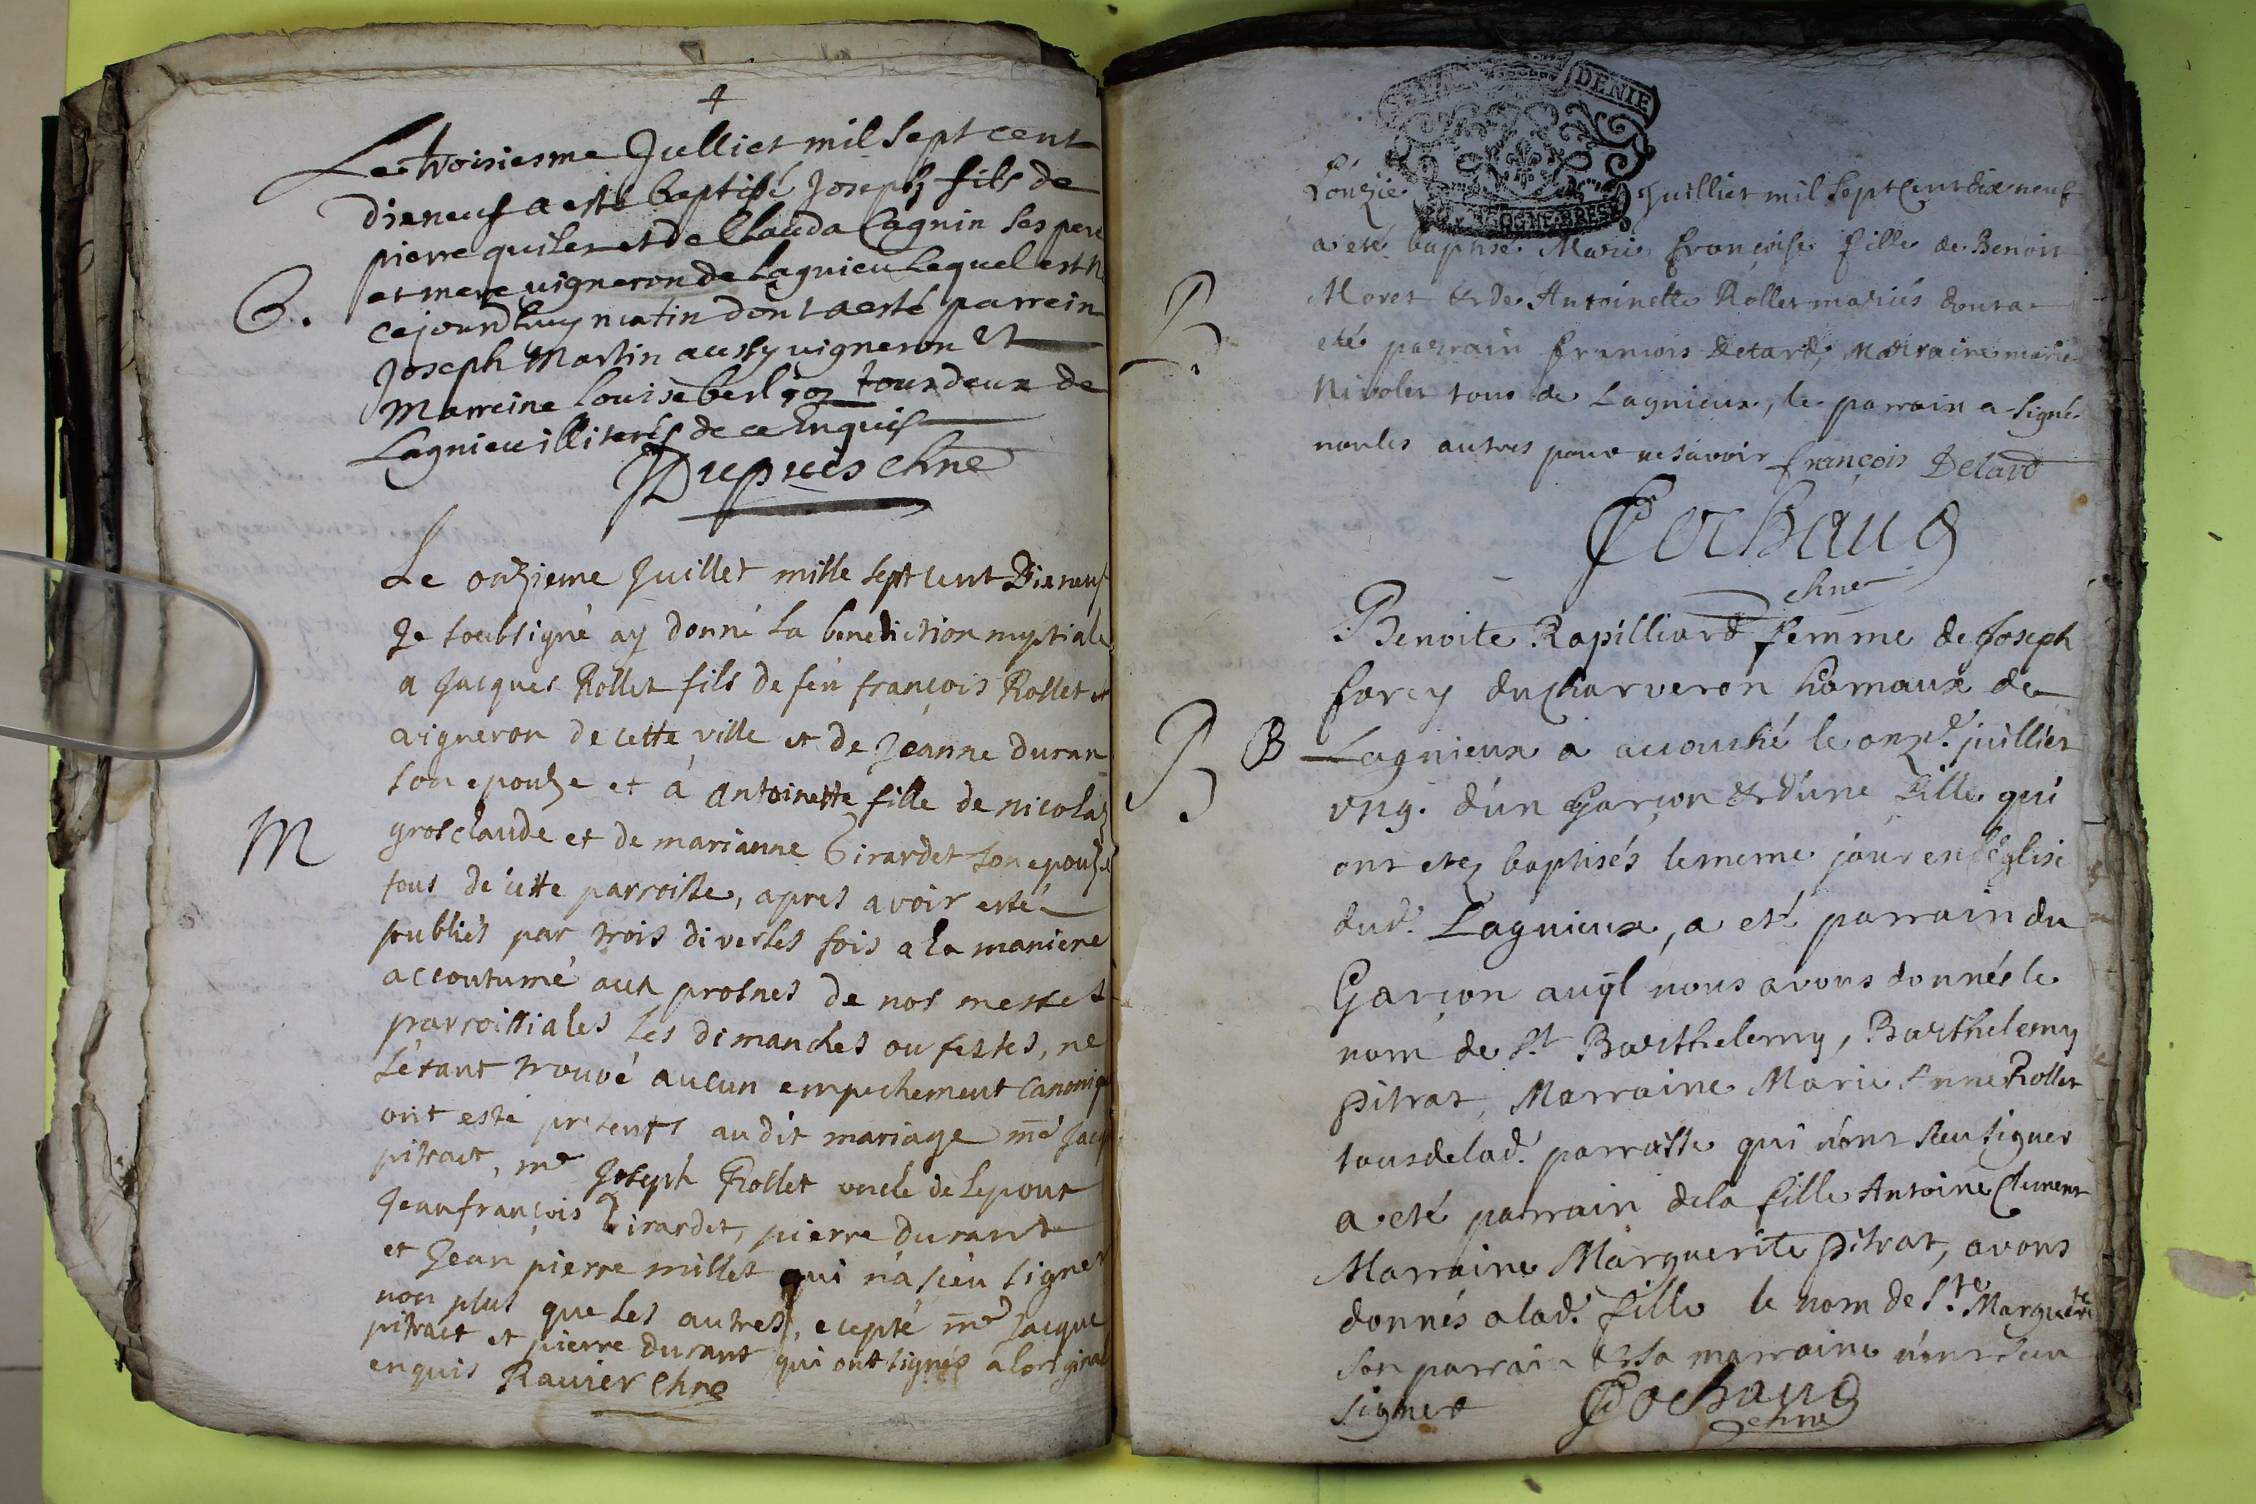 Le troisiesme Julliet mil sept cent
dieneuf a esté baptisé Joseph fils de
pierre quiler et de Clauda Cagnin ses pere
et mere vigneron de Lagnieu lequel est né
B.
ce jourdhuy matin dont a esté parrein
Joseph Martin aussy vigneron et
Marreine Louise tous deux de
Lagnieu illiterés de ce Enquis
Dupuis chne
Le onzieme Juillet mille sept cent Dixneuf
Je soubsigné ay donné la benediction nuptiale
a Jacques Rollet fils de feu françois Rollet
vigneron de cette ville et de Jeanne Duran
son epouze et à Antoinette fille de nicolas
grosclaude et de marianne Girardet son epouze
M
tous de cette parroisse, apres avoir esté
publiés par trois diverses fois a la maniere
accoutumé aux prosnes de nos messes
parroissiales les dimanches ou festes, ne
s'étant trouvé aucun empechement canonique
ont esté presents audit mariage mre Jacque
pitrait, mre Joseph Rollet oncle de lepoux
Jeanfrançois Girardet, pierre durant
et Jean pierre millet qui n'a sceu signer
non plus que les autres, ecepté mre Jacque
pitrait et pierre durant qui ont signés a l'original
enquis Ravier chne
GEN DENIE
BOURGOGNE BRESSE
L'onzie Juilliet mil sept cent dix neuf
a eté baptisé Marie françoise fille de Benoit
Moret & de Antoinette Rollet mariés dont a
B.
eté parrain francois Detard, Marraine marie
Nivolet tous de Lagnieux, le parrain a signé
non les autres pour ne savoir françois Delard
Cochaud
chne
Benoite Rapilliard femme de Joseph
forey du charveron hamaux de
B B
Lagnieux a accouché le onze. juilliet
1719. d'un Garçon & d'une fille qui
ont eté baptisés le meme jour en l'Eglise
dud. Lagnieux, a eté parrain du
Garçon auql nous avons donnés le
nom de St Barthelemy, Barthelemy
Pitrat, Marraine Marie Anne Rollet
tous de lad. parroisse qui n'ont sceu signer
a eté parrain de la fille Antoine Clement
Marraine Marguerite Pitrat, avons
donnés a lad. fille le nom de Ste Marguerite
son parrain & sa marraine n'ont sceu
signer Cochaud
chne